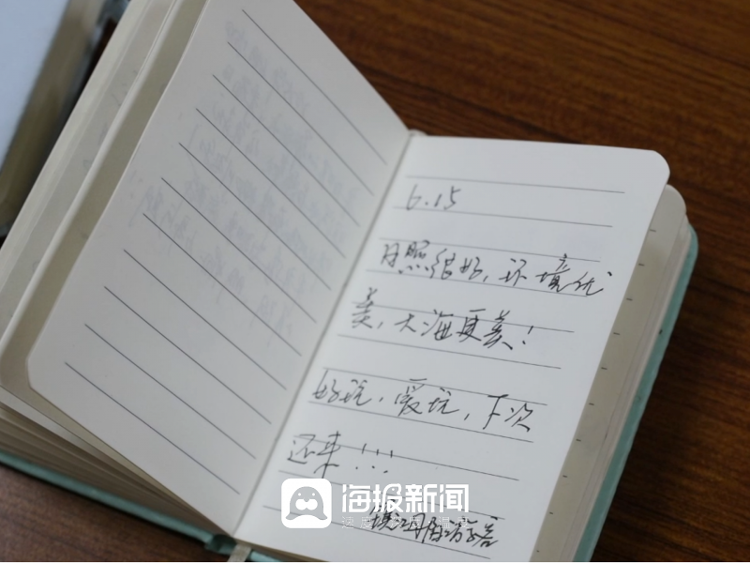 6.15
日照很好,环境优
美,大海更美!
好玩,爱玩,下次
还来!!!
海报新闻
镇江